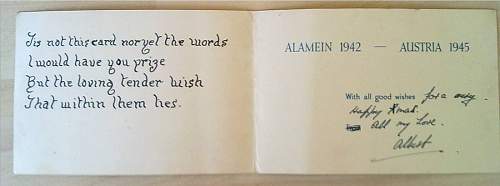 Tis not this card nor yet the words
I would have you prize
But the loving tender wish
That within them lies.
ALAMEIN 1942 — AUSTRIA 1945
With all good wishes for a very
Happy Xmas.
All my Love.
Albert